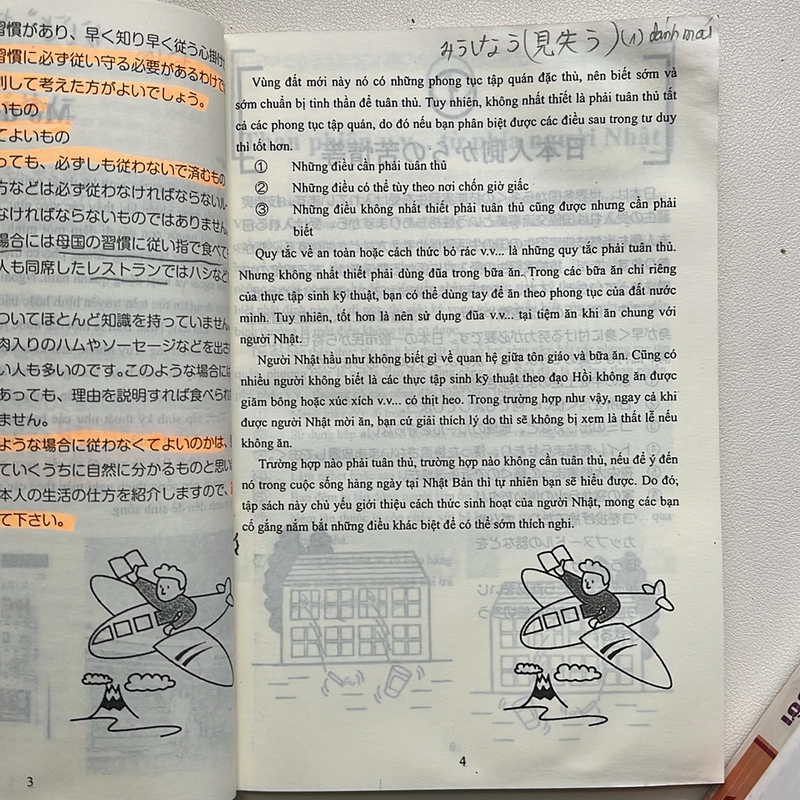 習慣があり、早く知り早く従う心掛け
習慣に必ず従い守る必要があるわけで
別して考えた方がよいでしょう。
いもの
てよいもの
っても、必ずしも従わないで済むもの
方などは必ず従わなければならないル
なければならないものではありません
場合には母国の習慣に従い指で食べて
人も同席したレストランではハシなど
ついてほとんど知識を持っていません
肉入りのハムやソーセージなどを出さ
い人も多いのです。このような場合には
あっても、理由を説明すれば食べられ
ません。
ような場合に従わなくてよいのかは、
ていくうちに自然に分かるものと思い
本人の生活の仕方を紹介しますので、
て下さい。
3
みうしなう(見失う)(1) đánh mất
Vùng đất mới này nó có những phong tục tập quán đặc thù, nên biết sớm và
sớm chuẩn bị tinh thần để tuân thủ. Tuy nhiên, không nhất thiết là phải tuân thủ tất
cả các phong tục tập quán, do đó nếu bạn phân biệt được các điều sau trong tư duy
thì tốt hơn.
① Những điều cần phải tuân thủ
② Những điều có thể tùy theo nơi chốn giờ giấc
③ Những điều không nhất thiết phải tuân thủ cũng được nhưng cần phải
biết
Quy tắc về an toàn hoặc cách thức bỏ rác v.v... là những quy tắc phải tuân thủ.
Nhưng không nhất thiết phải dùng đũa trong bữa ăn. Trong các bữa ăn chỉ riêng
của thực tập sinh kỹ thuật, bạn có thể dùng tay để ăn theo phong tục của đất nước
mình. Tuy nhiên, tốt hơn là nên sử dụng đũa v.v... tại tiệm ăn khi ăn chung với
người Nhật.
Người Nhật hầu như không biết gì về quan hệ giữa tôn giáo và bữa ăn. Cũng có
nhiều người không biết là các thực tập sinh kỹ thuật theo đạo Hồi không ăn được
giăm bông hoặc xúc xích v.v... có thịt heo. Trong trường hợp như vậy, ngay cả khi
được người Nhật mời ăn, bạn cứ giải thích lý do thì sẽ không bị xem là thất lễ nếu
không ăn.
Trường hợp nào phải tuân thủ, trường hợp nào không cần tuân thủ, nếu để ý đến
nó trong cuộc sống hàng ngày tại Nhật Bản thì tự nhiên bạn sẽ hiểu. Do đó,
tập sách này chủ yếu giới thiệu cách thức sinh hoạt của người Nhật, mong các bạn
cố gắng nắm bắt những điều khác biệt để có thể sớm thích nghi.
4